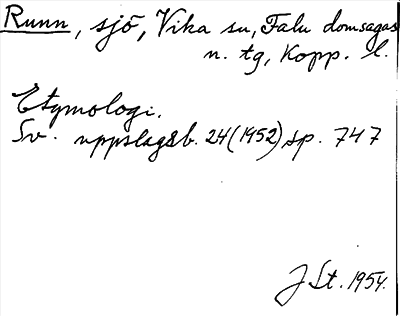 Runn, sjö, Vika sn, Falu domsagas
n. tg, Kopp. l.
Etymologi.
Sv. uppslagsb. 24 (1952) sp. 747
J St. 1954.